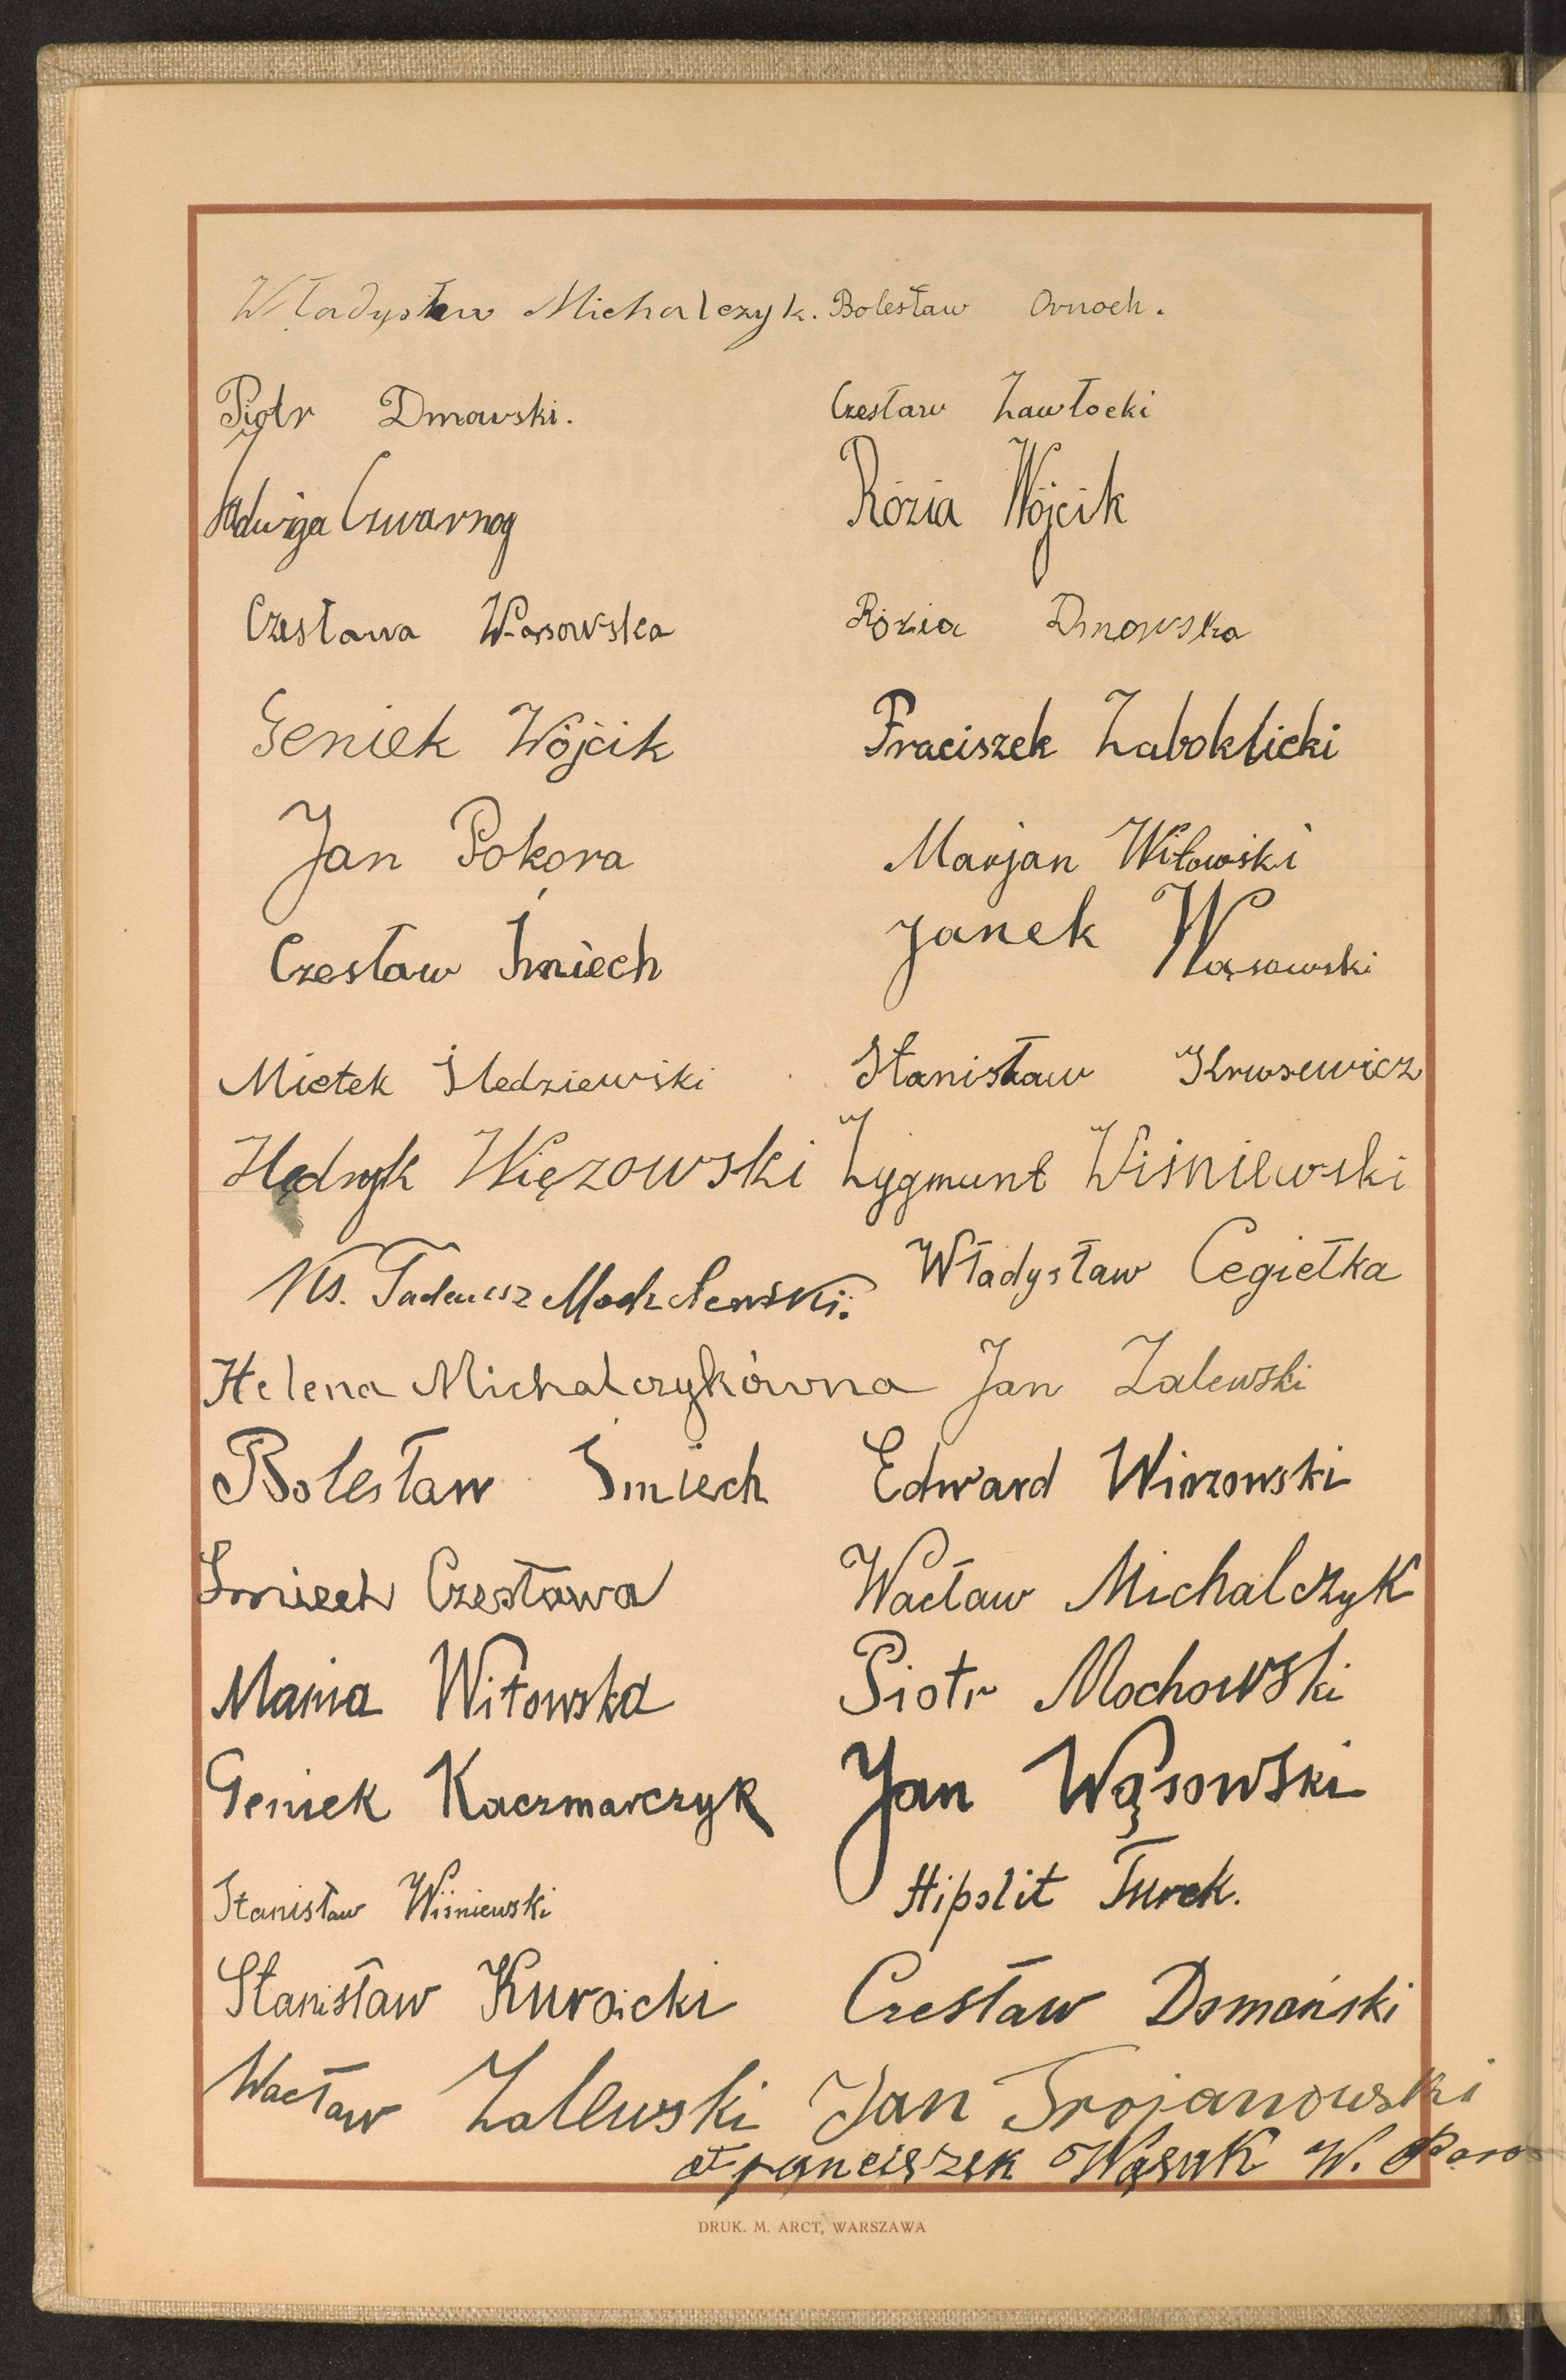 Władysław Michalczyk. Bolesław Ornoch.
Piotr Dmowski. Czesław Zawłocki
Jadwiga Czwarnog Rózia Wójcik
Czesława Wąsowska Rózia Dmowska
Geniek Wójcik Fraciszek Zaboklicki
Jan Pokora Marjan Witowski
Czesław Śmiech Janek Wąsowski
Mietek Śledziewski Stanisław
Więzowski Zygmunt Wiśniewski
Ks. Tadeusz Modzelewski. Władysław Cegiełka
Helena Michalczykówna Jan Zalewski
Bolesław Śmiech Edward
Smiech Czesława Wacław Michalczyk
Mania Witowska Piotr Mochowski
Geniek Kaczmarczyk Jan Wąsowski
Stanisław Wiśniewski Hipolit Turek.
Stanisław Kuroicki Czesław Domański
Wacław Zalewski Jan Trojanowski
Franciszek Wąsuk W.
DRUK. M. ARCT, WARSZAWA